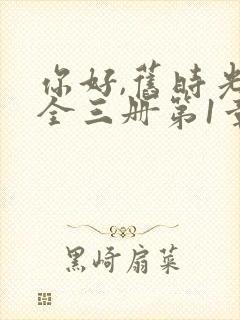 你好,旧时光
全三册第1章
黑崎扇菜